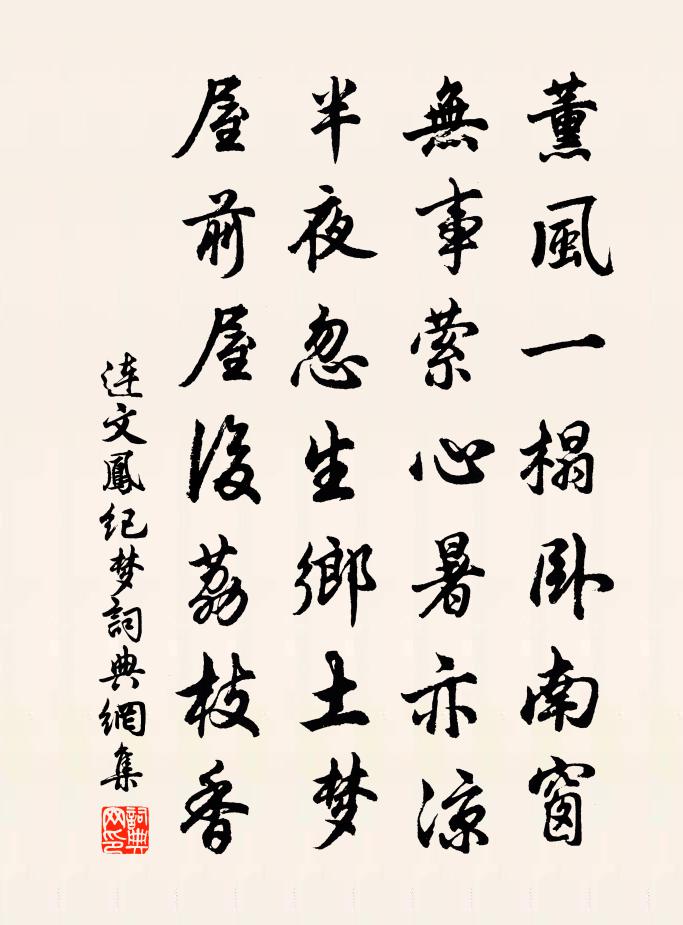 薰風一榻卧南窗
無事縈心暑亦涼
半夜忽生鄉土梦
屋前屋後荔枝香
連文鳳纪梦詞典網集
詞典网印